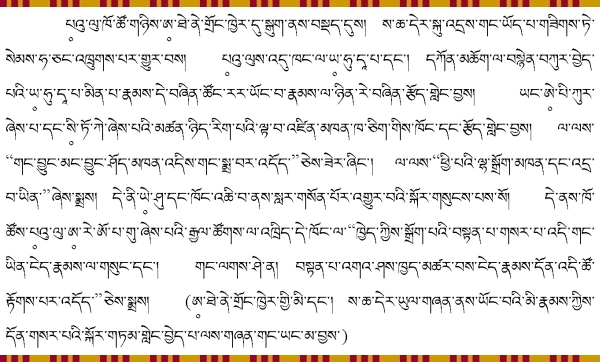 པའུ་ལུ་ཁོ་ཚོ་གཉིས་ཨ་ཐེ་ནེ་གྲོང་ཁྱེར་དུ་སྒུག་ནས་བསྡད་དུས། ས་ཆ་དེར་སྐུ་འདྲས་གང་ཡོད་པ་གཟིགས་ཏེ་
སེམས་ཧ་ཅང་འཁྲུགས་པར་གྱུར་བས། པའུ་ལུས་འདུ་ཁང་ལ་ཡ་ཧུ་དཱ་པ་དང་། དཀོན་མཆོག་ལ་བསྙེན་བཀུར་བྱེད་
པའི་ཡ་ཧུ་དཱ་པ་མིན་པ་རྣམས་དེ་བཞིན་ཚོང་རར་ཡོང་བ་རྣམས་ལ་ཉིན་རེ་བཞིན་རྩོད་གླེང་བྱས། ཡང་ཨེ་པི་ཀུར་
ཞེས་པ་དང་སི་ཏོ་ཀེ་ཞེས་པའི་མཚན་ཉིད་རིག་པའི་ལྟ་བ་འཛིན་མཁན་ཁ་ཅིག་གིས་ཁོང་དང་རྩོད་གླེང་བྱས། ལ་ལས་
“གང་བྱུང་མང་བྱུང་ཤོད་མཁན་འདིས་གང་སྨྲ་བར་འདོད་”ཅེས་ཟེར་ཞིང་། ལ་ལས་“ཕྱི་པའི་ལྷ་སྒྲོག་མཁན་དང་འདྲ་
བ་ཡིན་”ཞེས་སྨྲས། དེ་ནི་ཡེ་ཤུ་དང་ཁོང་འཆི་བ་ནས་སླར་གསོན་པོར་འགྱུར་བའི་སྐོར་གསུངས་པས་སོ། དེ་ནས་ཁོ་
ཚོས་པའུ་ལུ་ཨ་རེ་ཨོ་པ་གུ་ཞེས་པའི་རྒྱལ་ཚོགས་ལ་འཁྲིད་དེ་ཁོང་ལ་“ཁྱེད་ཀྱིས་སྒྲོག་པའི་བསྟན་པ་གསར་པ་འདི་གང་
ཡིན་ངེད་རྣམས་ལ་གསུང་དང་། གང་ལགས་ཤེ་ན། བསྟན་པ་འགའ་ཤས་ཁྱད་མཚར་བས་ངེད་རྣམས་དོན་འདི་ཚོ་
རྟོགས་པར་འདོད་”ཅེས་སྨྲས། (ཨ་ཐེ་ནེ་གྲོང་ཁྱེར་གྱི་མི་དང་། ས་ཆ་དེར་ཡུལ་གཞན་ནས་ཡོང་བའི་མི་རྣམས་ཀྱིས་
དོན་གསར་པའི་སྐོར་གཏམ་གླེང་བྱེད་པ་ལས་གཞན་གང་ཡང་མ་བྱས་)